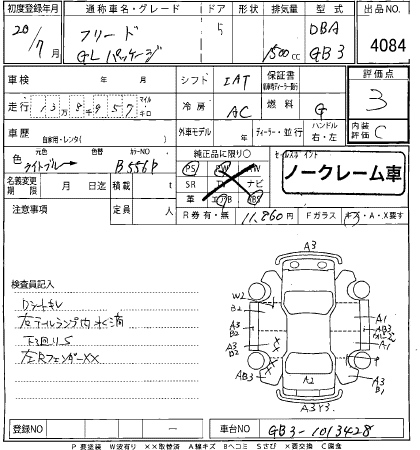 初度登録年月 通称車名・グレード ドア 形状 排気量 型式 出品NO
20/7月 フリード GLパッケージ 5 1500cc DBA GB3 4084
車検 年 月 シフト IAT 保証書 評価点 3
走行 13万8千957 マイル キロ 冷房 AC 燃料 G
車歴 自家用・レンタ( ) 外車モデル 年 ディーラー・並行 ハンドル 右・左 内装評価 C
色 元色 ライトブルー 色替 カラーNO B556P 純正品に限り○ セールスポイント
PS PW AW
名義変更期限 月 日迄 積載 t SR TV ナビ ノークレーム車
革 エアB ABS
注意事項 定員 人 R券 有・無 11,860円 Fガラス キズ・A・X要す
検査員記入
Dシートキレ
左テールランプ内水滴
下回りS
左RフェンダーXX
A3
W2
B2
A3
B2
X
X
AB3
A2
A3Y3
A1
AB3
A1
P
A3
B1
登録NO ー 車台NO GB3-1013428
P要塗装 W波有り ××取替済 A線キズ Bヘコミ Sさび ×要交換 C腐食